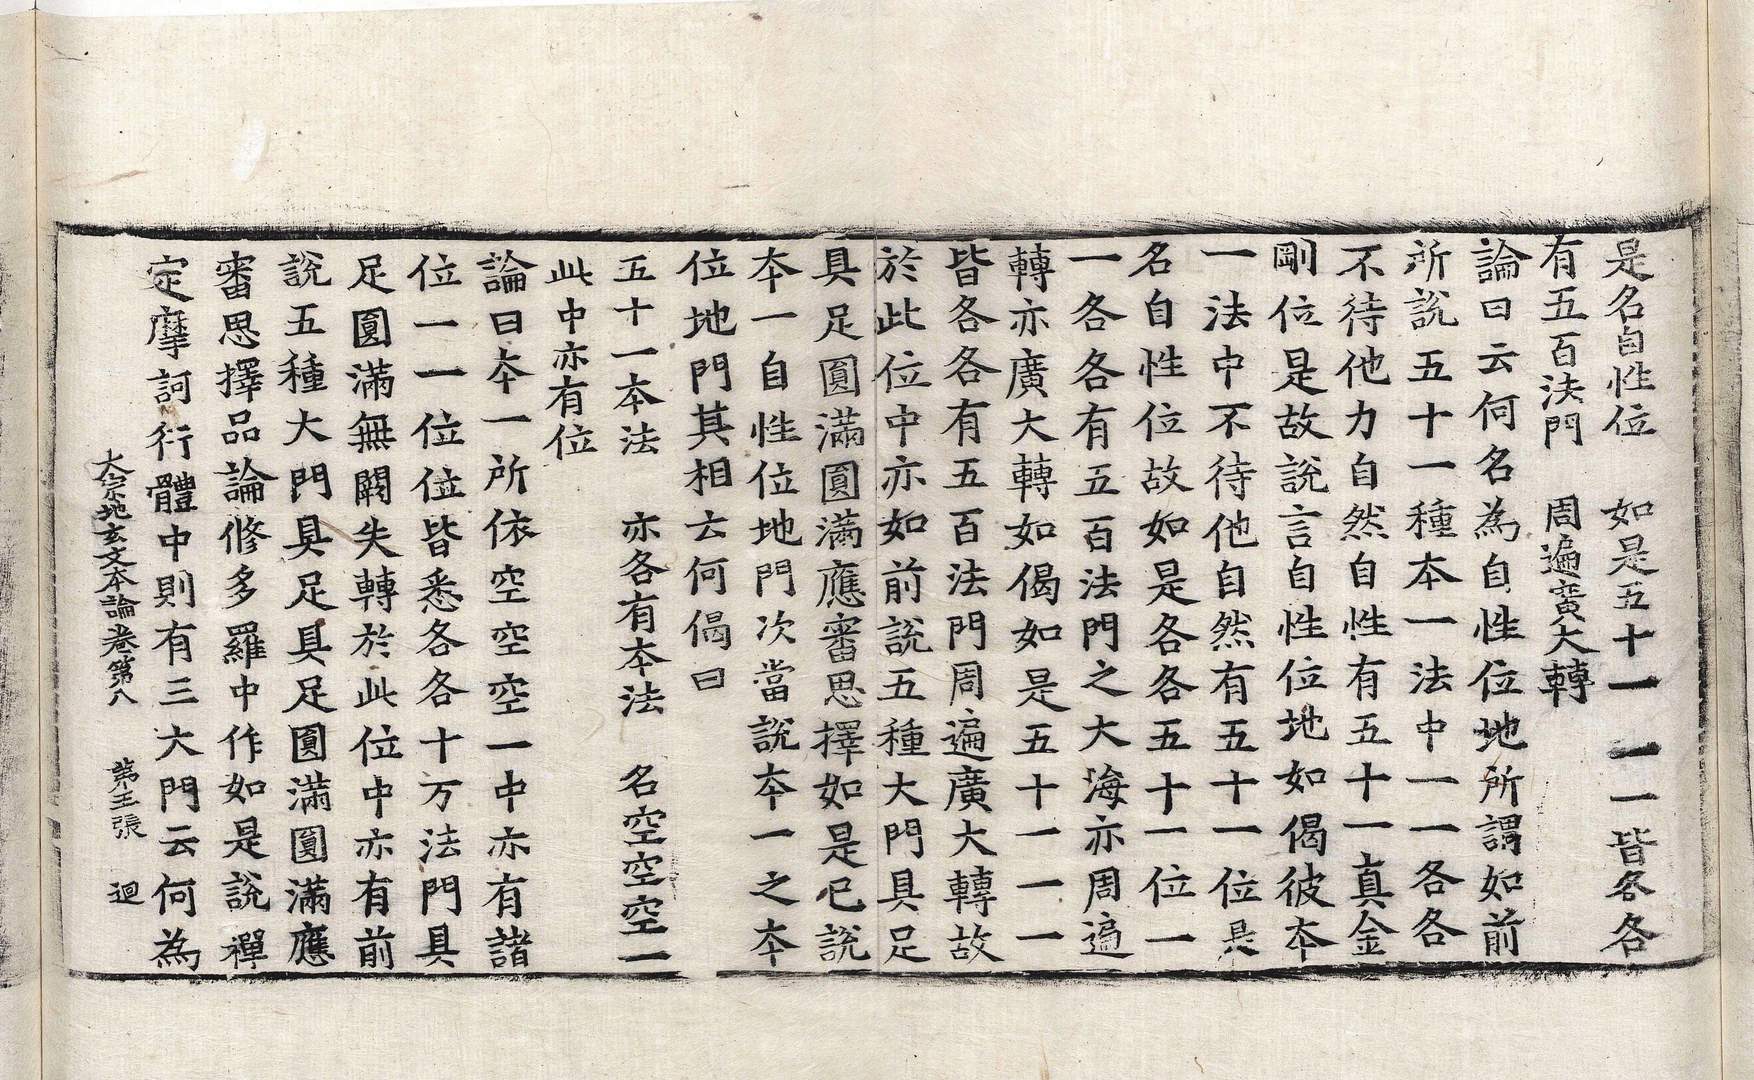 是名自性位　如是五十一　一一皆各各
有五百法門　周遍廣大轉
論曰云何名為自性位地所謂如前
所說五十一種本一法中一一各各
不待他力自然自性有五十一真金
剛位是故說言自性位地如偈彼本
一法中不待他自然有五十一位是
名自性位故如是各各五十一位一
一各各有五百法門之大海亦周遍
轉亦廣大轉如偈如是五十一一一
皆各各有五百法門周遍廣大轉故
於此位中亦如前說五種大門具足
具足圓滿圓滿應審思擇如是已說
本一自性位地門次當說本一之本
位地門其相云何偈曰
五十一本法　亦各有本法　名空空空一
此中亦有位
論曰本一所依空空空一中亦有諸
位一一位位皆悉各各十方法門具
足圓滿無闕失轉於此位中亦有前
說五種大門具足具足圓滿圓滿應
審思擇品論修多羅中作如是說禪
定摩訶衍體中則有三大門云何為
大宗地玄文本論卷第八　第五張　迴